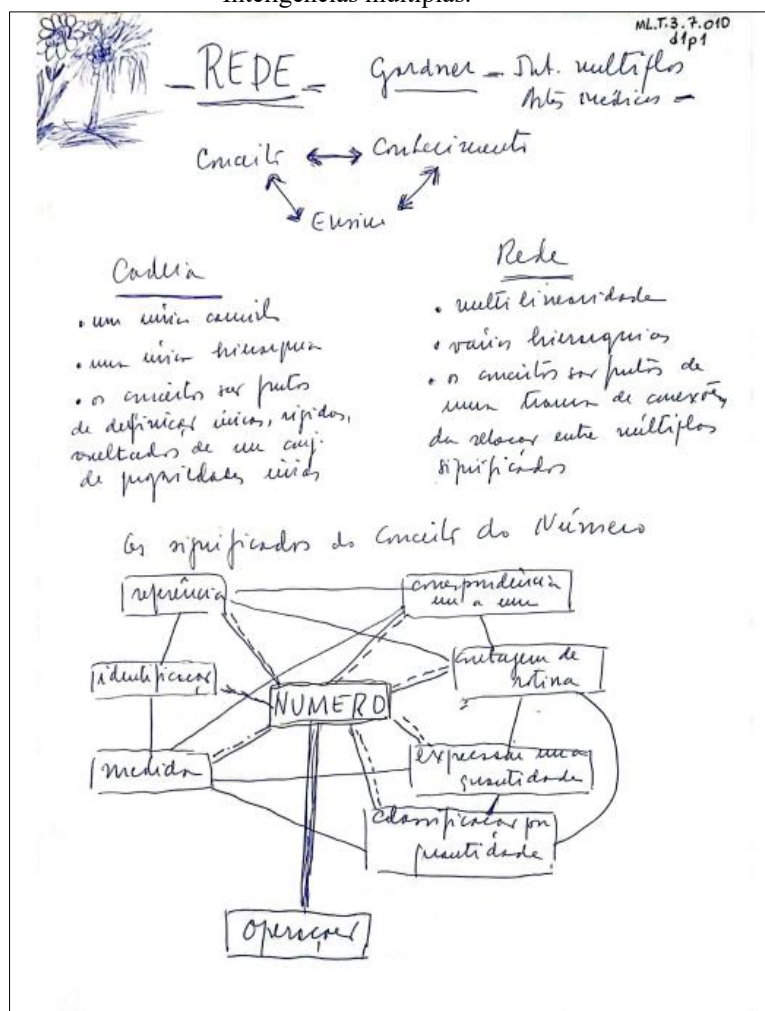 Inteligências múltiplas.
ML.T.3.7.010
d1p1
- REDE -
Gardner - Int. multiplos
Artes médicas -
Conceito ↔ Conhecimento
Ensino
Cadeia
• um único conceito
• uma única hierarquia
• os conceitos sao frutos
de definiçao únicas, rígidas,
resultados de um conj.
de propriedades únicas
Rede
• multilinearidade
• várias hierarquias
• os conceitos sao frutos de
uma trama de conexões,
da relacao entre múltiplos
significados
Os significados do Conceito do Número
referência
correspondência
um a um
identificaçao
contagem de
rotina
NUMERO
medida
expressar uma
quantidade
classificacao por
quantidade
Operaçoes